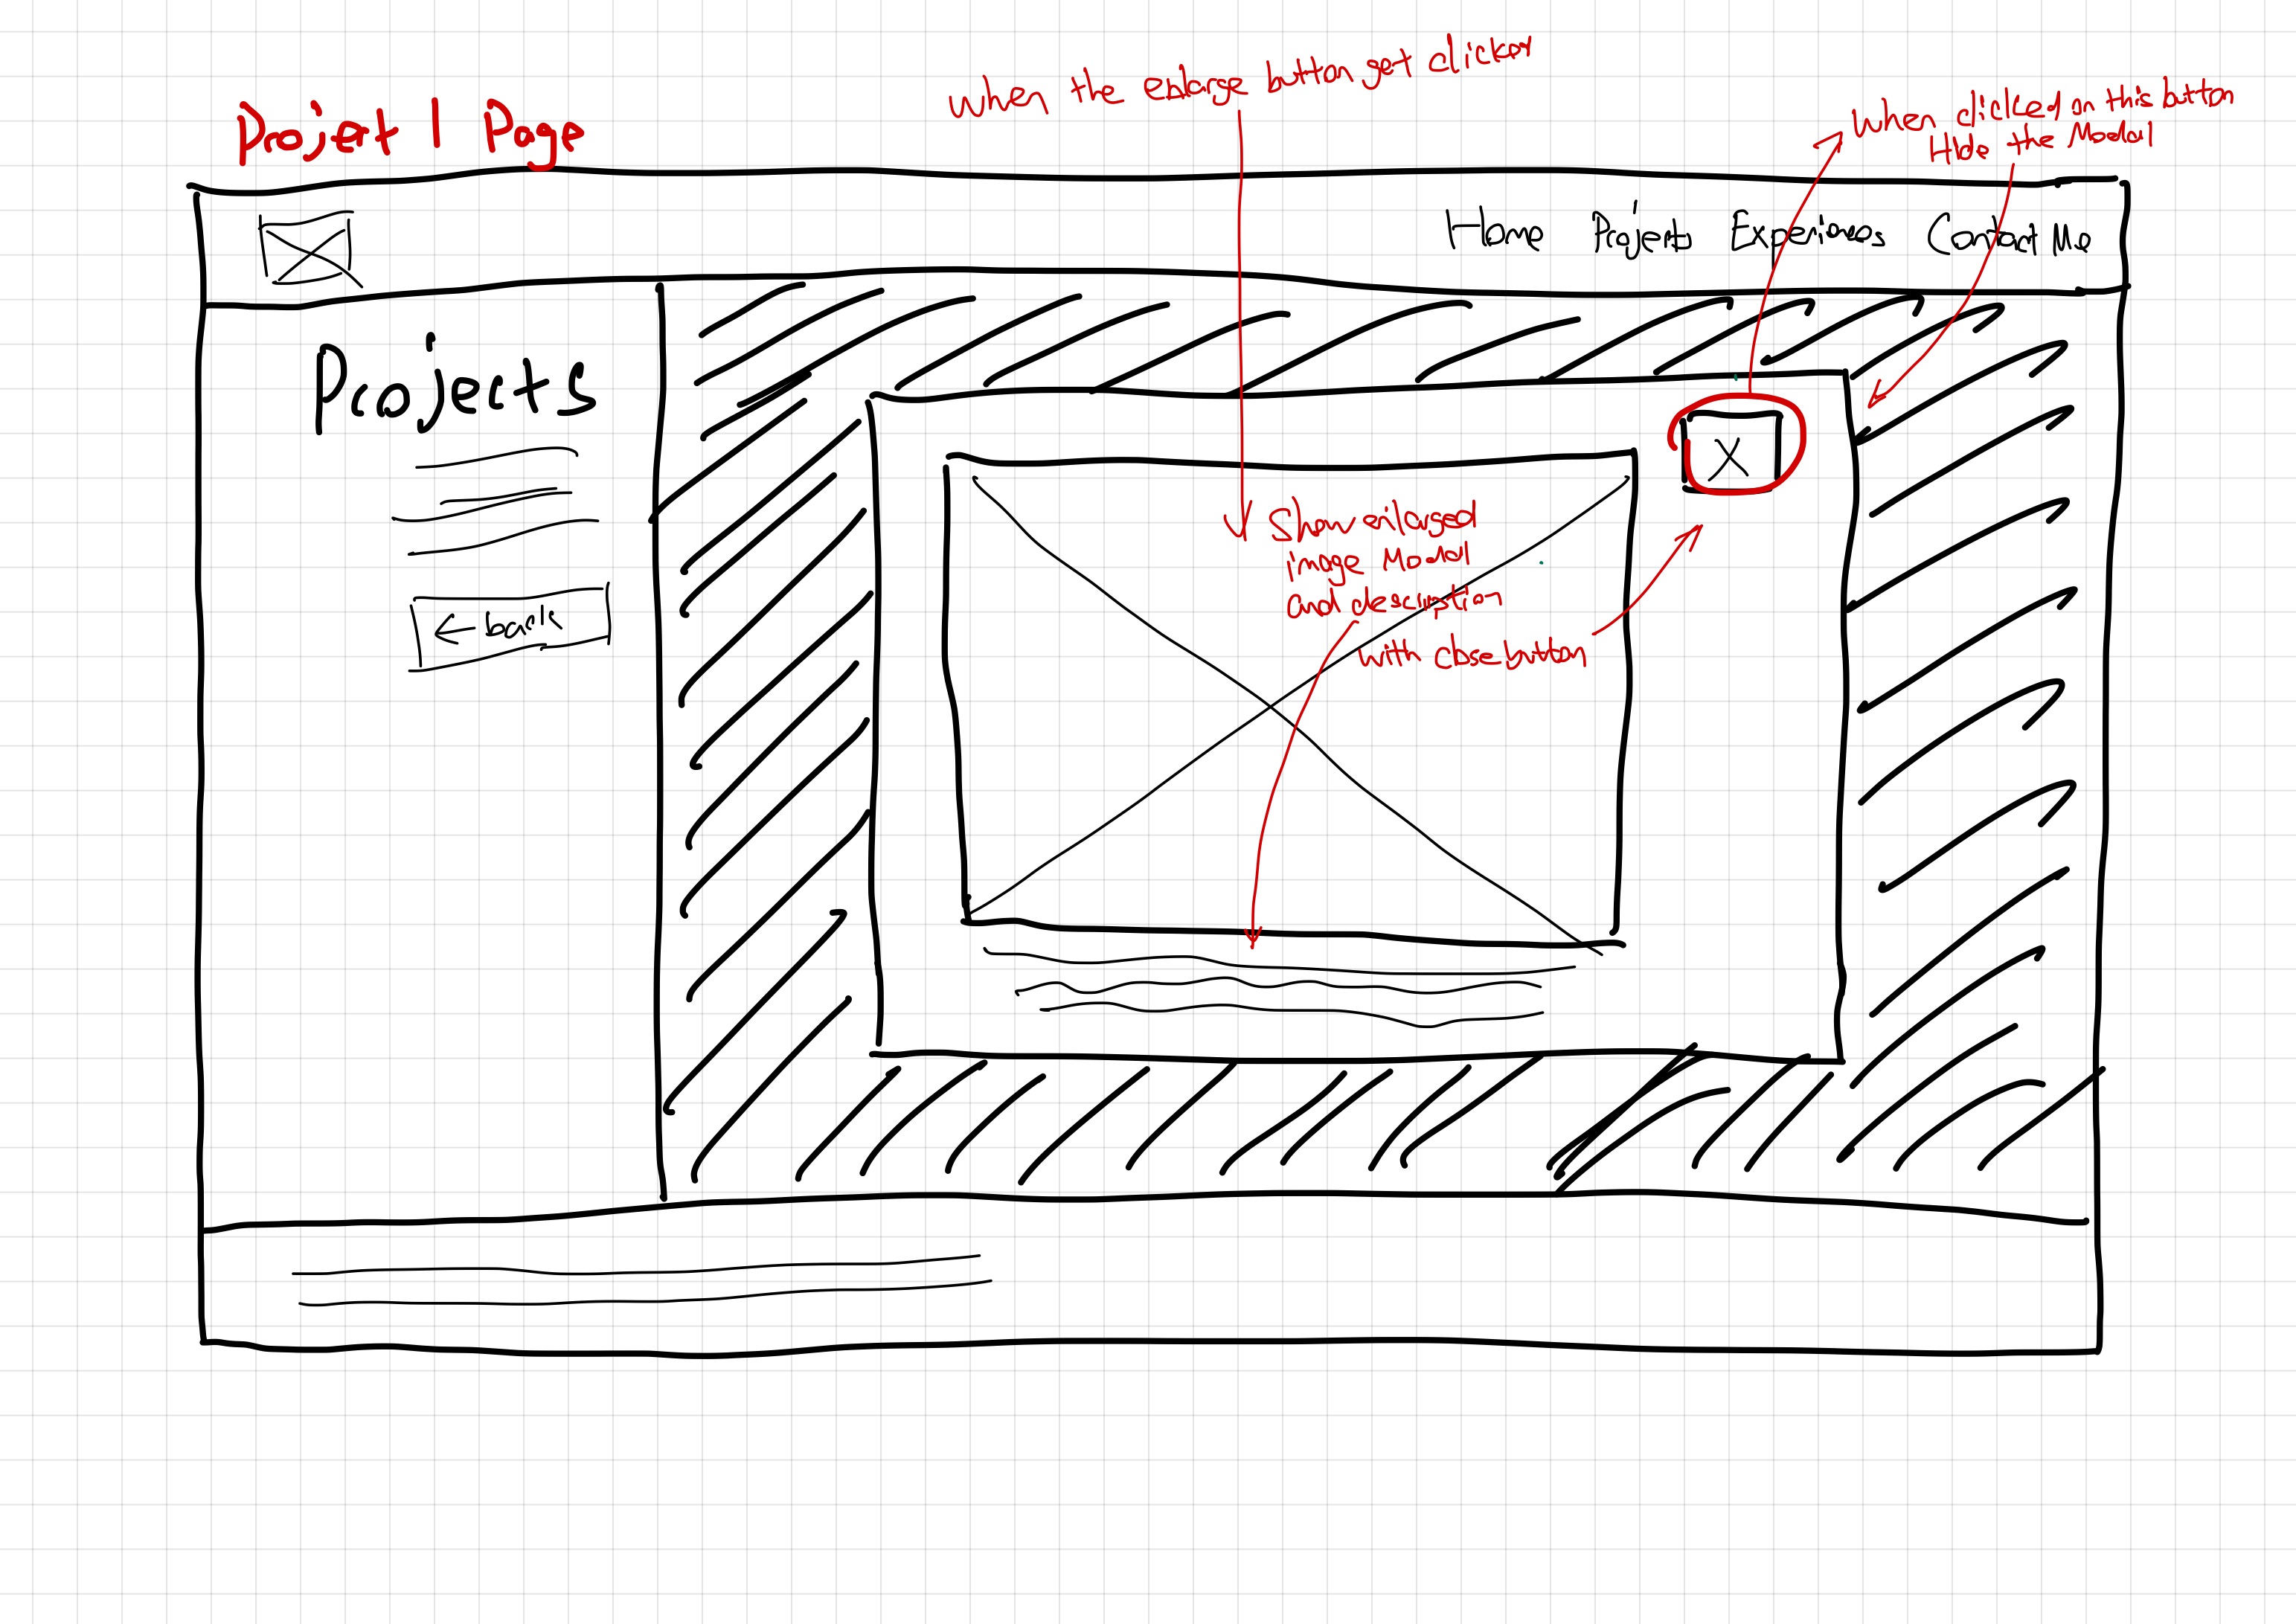 when the enlarge button get clicked
Project 1 Page
when clicked on this button
Hide the Modal
Home Projects Experiences Contact Me
Projects
← back
X
Show enlarged
image Modal
and description
with close button